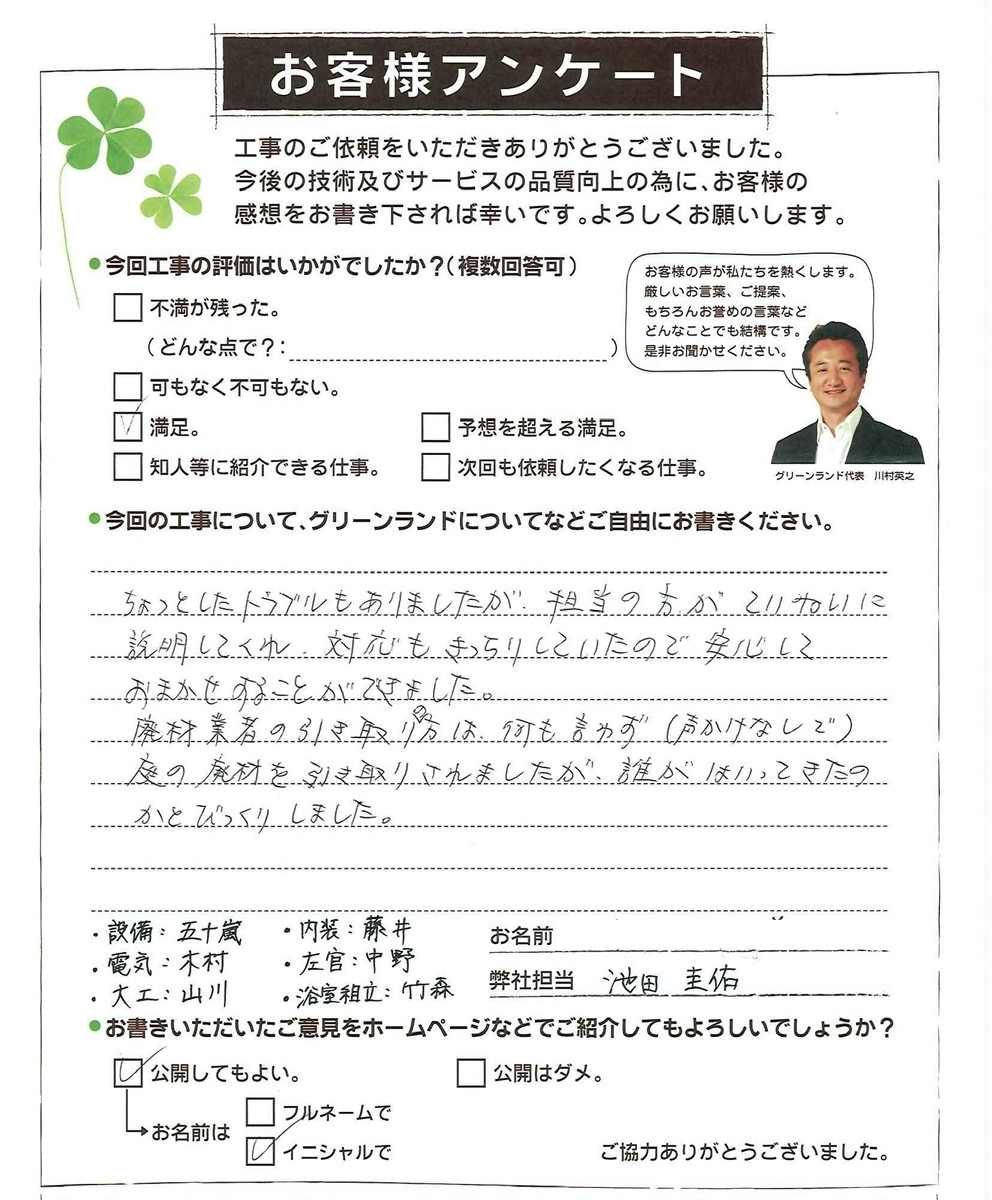 お客様アンケート
工事のご依頼をいただきありがとうございました。
今後の技術及びサービスの品質向上の為に、お客様の
感想をお書き下されば幸いです。よろしくお願いします。
●今回工事の評価はいかがでしたか？（複数回答可）
不満が残った。
（どんな点で？： ）
可もなく不可もない。
満足。
予想を超える満足。
知人等に紹介できる仕事。
次回も依頼したくなる仕事。
お客様の声が私たちを熱くします。
厳しいお言葉、ご提案、
もちろんお誉めの言葉など
どんなことでも結構です。
是非お聞かせください。
グリーンランド代表　川村英之
●今回の工事について、グリーンランドについてなどご自由にお書きください。
ちょっとしたトラブルもありましたが、担当の方がていねいに
説明してくれ、対応もきっちりしていたので安心して
おまかせすることができました。
廃材業者の引き取りの方は、何も言わず（声かけなしで）
庭の廃材を引き取りされましたが、誰がはいってきたの
かとびっくりしました。
・設備：五十嵐
・電気：木村
・大工：山川
・内装：藤井
・左官：中野
・浴室組立：竹森
お名前
弊社担当　池田 圭佑
●お書きいただいたご意見をホームページなどでご紹介してもよろしいでしょうか？
公開してもよい。
公開はダメ。
お名前は
フルネームで
イニシャルで
ご協力ありがとうございました。